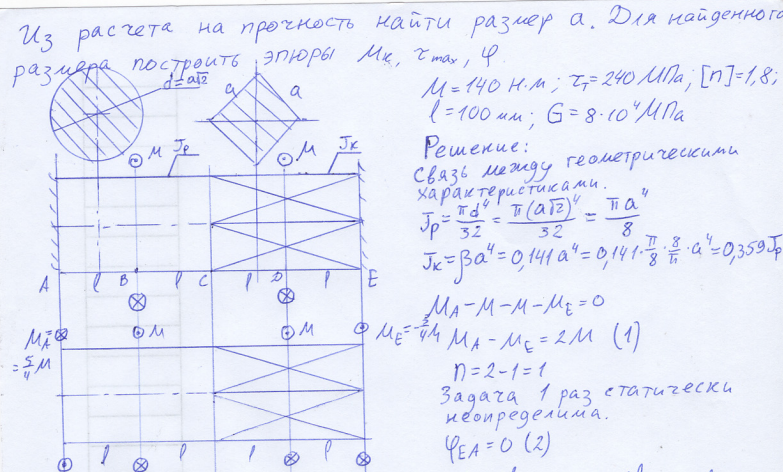 Из расчета на прочность найти размер a. Для найденного
размера построить эпюры Mк, τmax, φ.
d=a√2
a a
M = 140 Н·м; τт = 240 МПа; [n] = 1,8;
l = 100 мм; G = 8·10⁴ МПа
Решение:
Связь между геометрическими
характеристиками.
Jρ = πd⁴/32 = π(a√2)⁴/32 = πa⁴/8
Jк = βa⁴ = 0,141a⁴ = 0,141·π/8·8/π·a⁴ = 0,359Jρ
M Jρ M Jк
A l B l C l D l E
MA - M - M - ME = 0
MA - ME = 2M (1)
n = 2-1 = 1
Задача 1 раз статически
неопределима.
φEA = 0 (2)
MA = 5/4 M
M M
ME = -3/4 M
l l l l